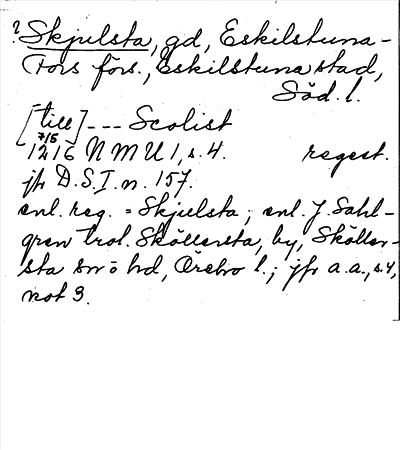 ? Skjulsta, gd, Eskilstuna-
Fors förs., Eskilstuna stad,
Söd. l.
[till] --- Scolist
7/5
1216 NMU 1, s. 4. regest.
jfr D.S.I. n. 157.
enl. reg. = Skjulsta; enl. J. Sahl-
gren trol. Sköllersta, by, Sköller-
sta sn o hd, Örebro l.; jfr a.a., s. 4,
not 3.